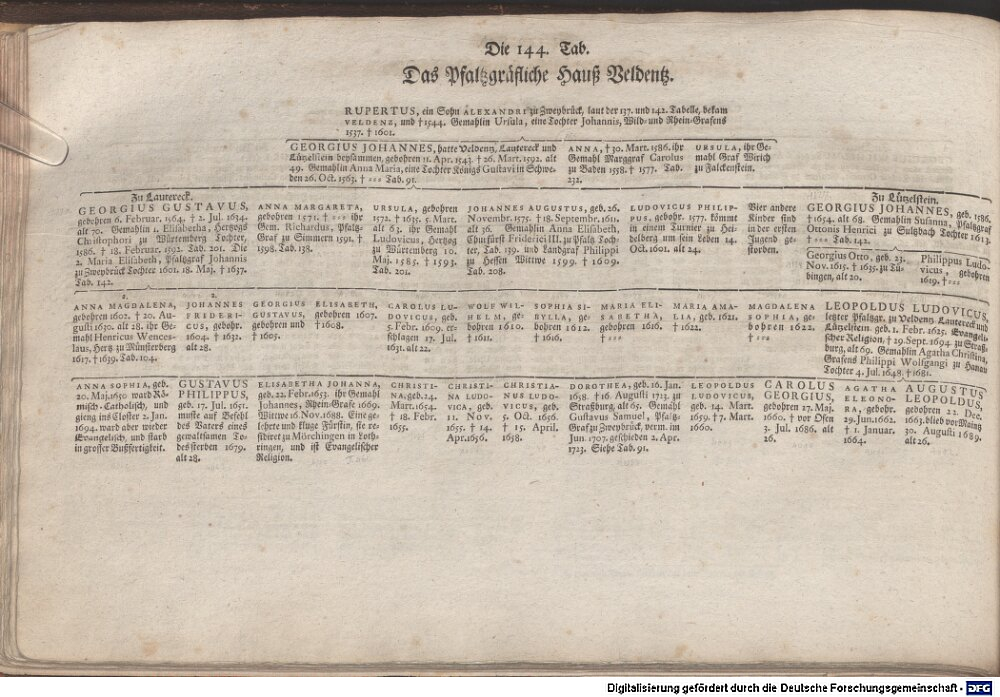 Die 144. Tab.
Das Pfaltzgräfliche Hauß Veldentz.
RUPERTUS, ein Sohn ALEXANDRI zu Zweybrück, laut der 137. und 142. Tabelle, bekam
VELDENZ, und † 1544. Gemahlin Ursula, eine Tochter Johannis, Wild- und Rhein-Grafens
1537. † 1601.
GEORGIUS JOHANNES, hatte Veldentz, Lautereck und
Lützelstein beysammen, gebohren 11. Apr. 1543. † 26. Mart. 1592. alt
49. Gemahlin Anna Maria, eine Tochter Königs Gustavi in Schwe-
den 26. Oct. 1563. † --- Tab. 91.
ANNA, † 30. Mart. 1586. ihr
Gemahl Marggraf Carolus
zu Baden 1558. † 1577. Tab.
232.
URSULA, ihr Ge-
mahl Graf Wirich
zu Falckenstein.
Zu Lautereck.
GEORGIUS GUSTAVUS,
gebohren 6. Februar. 1564. † 2. Jul. 1634.
alt 70. Gemahlin 1. Elisabetha, Hertzogs
Christophori zu Würtemberg Tochter,
1586. † 18. Februar. 1592. Tab. 201. Die
2. Maria Elisabeth, Pfaltzgraf Johannis
zu Zweybrück Tochter 1601. 18. Maj. † 1637.
Tab. 142.
ANNA MARGARETA,
gebohren 1571. † --- ihr
Gem. Richardus, Pfaltz-
Graf zu Simmern 1591. †
1598. Tab. 138.
URSULA, gebohren
1572. † 1635. 5. Mart.
alt 63. ihr Gemahl
Ludovicus, Hertzog
zu Würtemberg 10.
Maj. 1585. † 1593.
Tab. 201.
JOHANNES AUGUSTUS, geb. 26.
Novembr. 1575. † 18. Septembr. 1611.
alt 36. Gemahlin Anna Elisabeth,
Churfürst Friderici III. zu Pfaltz Toch-
ter, Tab. 139. und Landgraf Philippi
zu Hessen Wittwe 1599. † 1609.
Tab. 208.
LUDOVICUS PHILIP-
PUS, gebohr. 1577. kömmt
in einem Turnier zu Hei-
delberg um sein Leben 14.
Oct. 1601. alt 24.
Vier andere
Kinder sind
in der ersten
Jugend ge-
storben.
Zu Lützelstein.
GEORGIUS JOHANNES, geb. 1586.
† 1654. alt 68. Gemahlin Susanna, Pfaltzgraf
Ottonis Henrici zu Sultzbach Tochter 1613.
† --- Tab. 142.
Georgius Otto, geb. 23.
Nov. 1615. † 1635. zu Tü-
bingen, alt 20.
Philippus Ludo-
vicus, gebohren
1619. † ---
1.
ANNA MAGDALENA,
gebohren 1602. † 20. Au-
gusti 1630. alt 28. ihr Ge-
mahl Henricus Wences-
laus, Hertz zu Münsterberg
1617. † 1639. Tab. 104.
2.
JOHANNES
FRIDERI-
CUS, gebohr.
1604. † 1632.
alt 28.
GEORGIUS
GUSTAVUS,
gebohren und
† 1605.
ELISABETH,
gebohren 1607.
† 1608.
CAROLUS LU-
DOVICUS, geb.
5. Febr. 1609. er-
schlagen 17. Jul.
1631. alt 22.
WOLF WIL-
HELM, ge-
bohren 1610.
† 1611.
SOPHIA SI-
BYLLA, ge-
bohren 1612.
† 1616.
MARIA ELI-
SABETHA,
gebohren 1616.
† ---
MARIA AMA-
LIA, geb. 1621.
† 1622.
MAGDALENA
SOPHIA, ge-
bohren 1622.
† ---
LEOPOLDUS LUDOVICUS,
letzter Pfaltzgr. zu Veldentz, Lautereck und
Lützelstein. geb. 1. Febr. 1625. Evangeli-
scher Religion, † 29. Sept. 1694. zu Straß-
burg, alt 69. Gemahlin Agatha Christina,
Grafens Philippi Wolfgangi zu Hanau
Tochter 4. Jul. 1648. † 1681.
ANNA SOPHIA, geb.
20. Maj. 1650. ward Rö-
misch-Catholisch, und
gieng ins Closter 2. Jan.
1694. ward aber wieder
Evangelisch, und starb
in grosser Bußfertigkeit.
GUSTAVUS
PHILIPPUS,
geb. 17. Jul. 1651.
muste auf Befehl
des Vaters eines
gewaltsamen To-
des sterben 1679.
alt 28.
ELISABETHA JOHANNA,
geb. 22. Febr. 1653. ihr Gemahl
Johannes, Rhein-Grafe 1669.
Wittwe 16. Nov. 1688. Eine ge-
lehrte und kluge Fürstin, sie re-
sidiret zu Mörchingen in Loth-
ringen, und ist Evangelischer
Religion.
CHRISTI-
NA, geb. 24.
Mart. 1654.
† 18. Febr.
1655.
CHRISTI-
NA LUDO-
VICA, geb.
11. Nov.
1655. † 14.
Apr. 1656.
CHRISTIA-
NUS LUDO-
VICUS, geb.
5. Oct. 1656.
† 15. April.
1658.
DOROTHEA, geb. 16. Jan.
1658. † 16. Augusti 1723. zu
Straßburg, alt 65. Gemahl
Gustavus Samuel, Pfaltz-
Graf zu Zweybrück, verm. im
Jun. 1707. geschieden 2. Apr.
1723. Siehe Tab. 91.
LEOPOLDUS
LUDOVICUS,
geb. 14. Mart.
1659. † 7. Mart.
1660.
CAROLUS
GEORGIUS,
gebohren 17. Maj.
1660. † vor Ofen
3. Jul. 1686. alt
26.
AGATHA
ELEONO-
RA, gebohr.
29. Jun. 1662.
† 1. Januar.
1664.
AUGUSTUS
LEOPOLDUS,
gebohren 22. Dec.
1663. blieb vor Mainz
30. Augusti 1689.
alt 26.
Digitalisierung gefördert durch die Deutsche Forschungsgemeinschaft - DFG